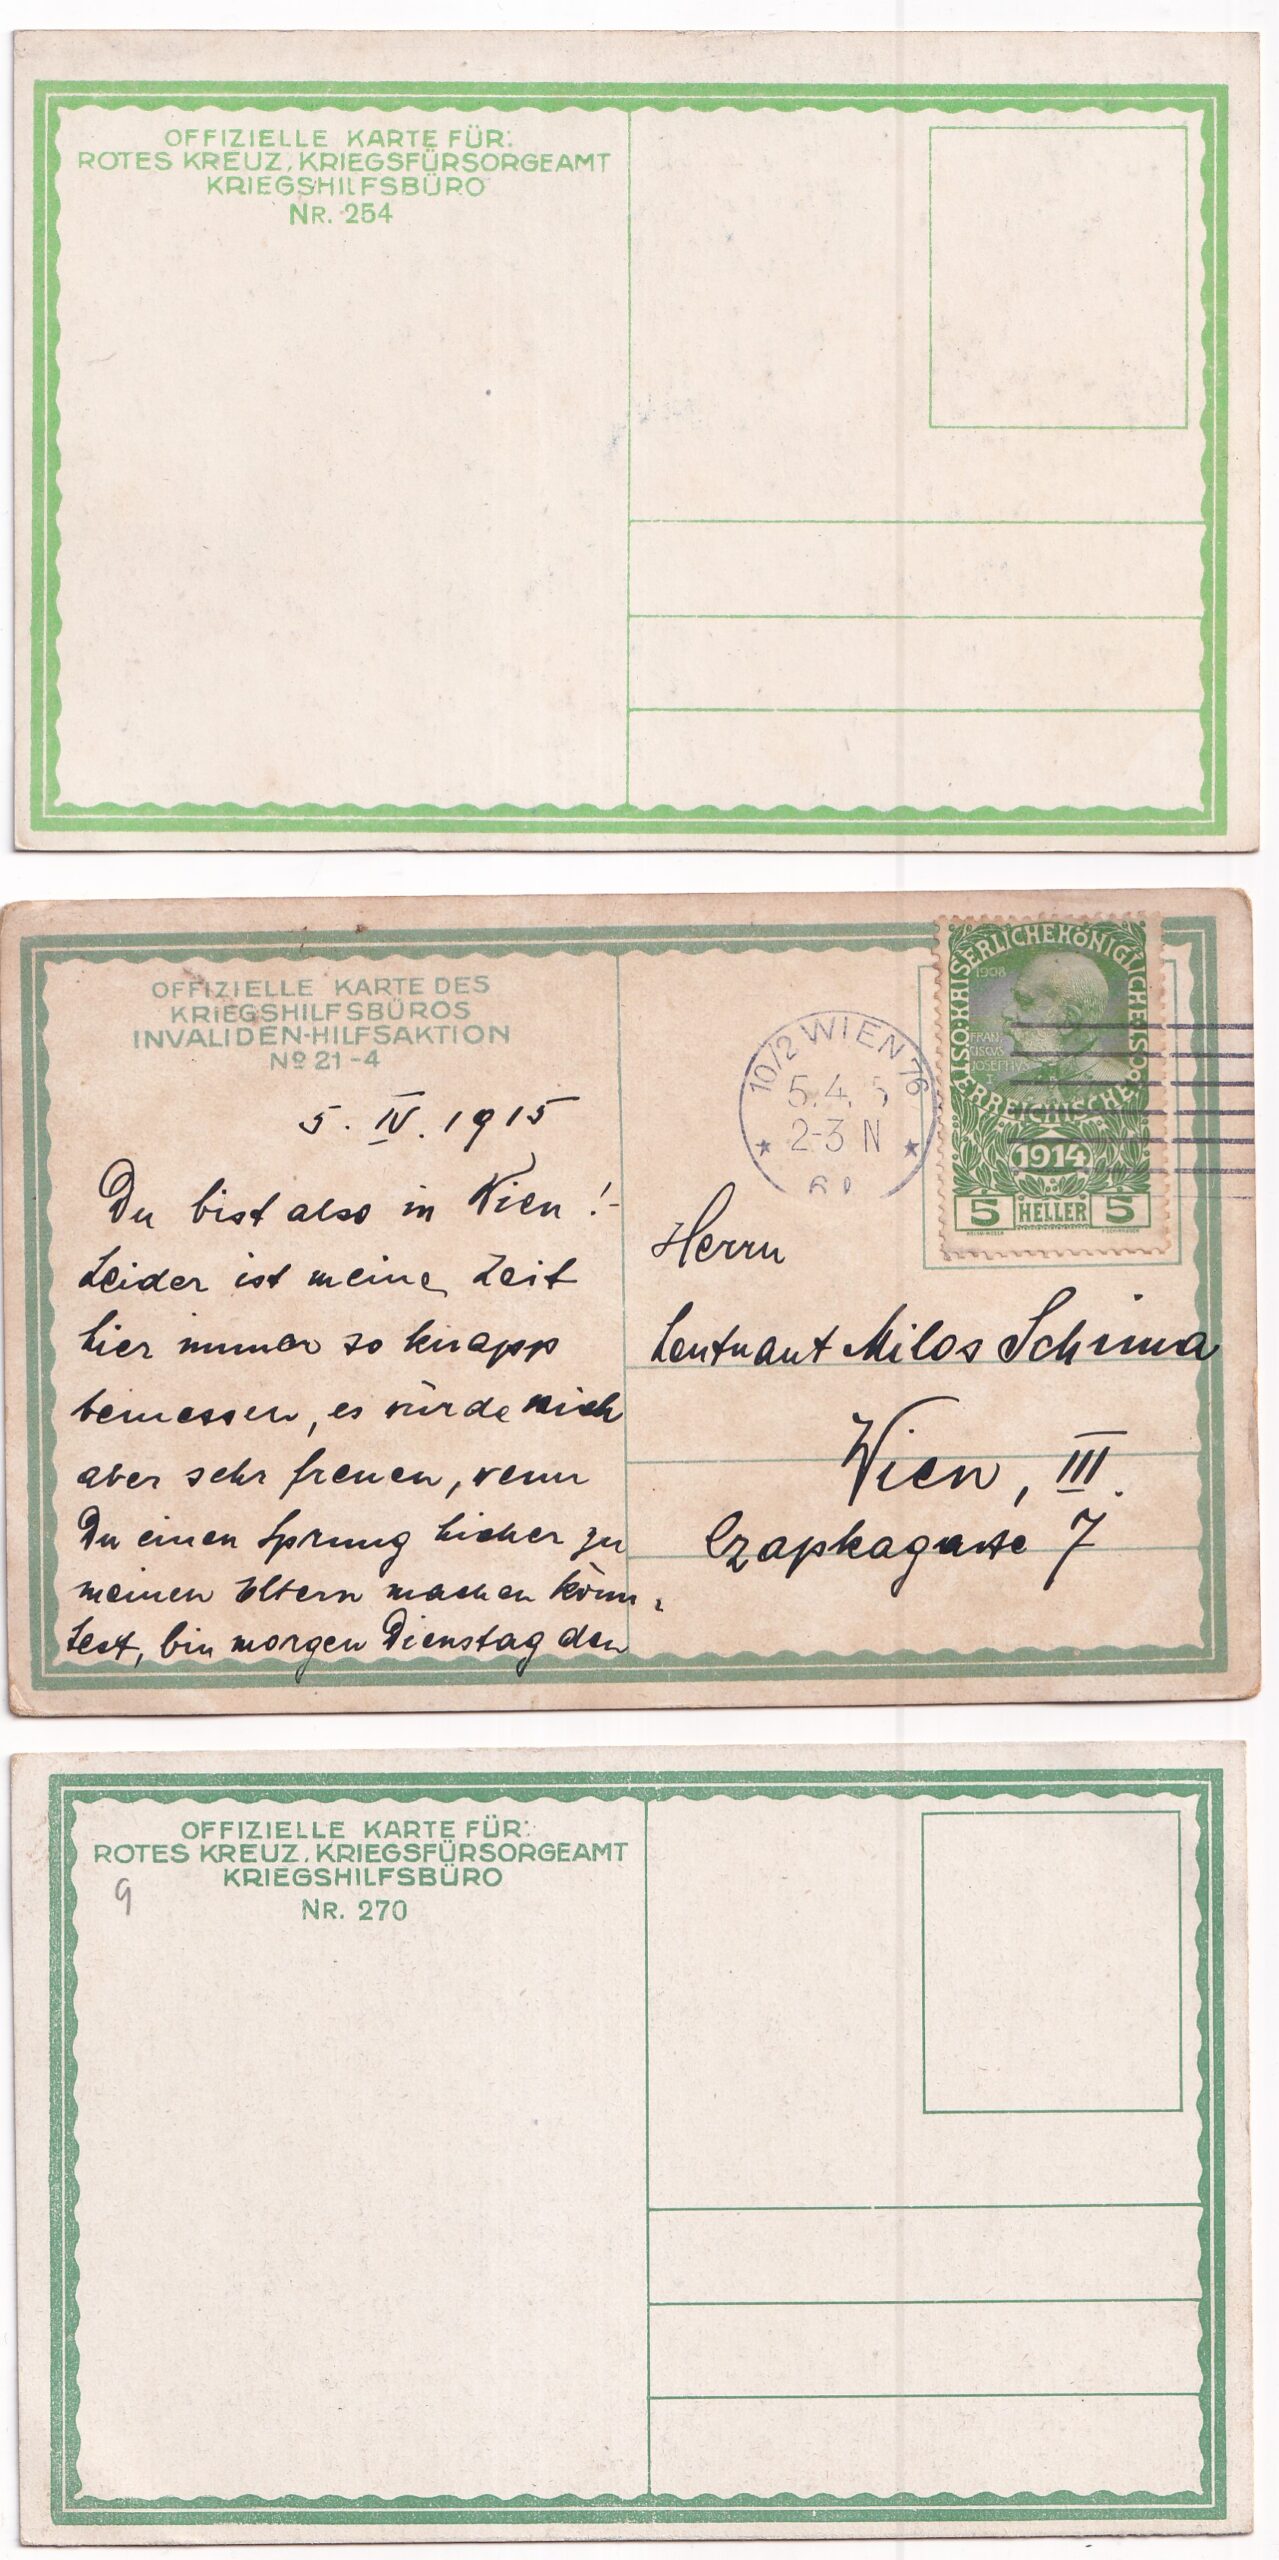 OFFIZIELLE KARTE FÜR:
ROTES KREUZ, KRIEGSFÜRSORGEAMT
KRIEGSHILFSBÜRO
NR. 254
OFFIZIELLE KARTE DES
KRIEGSHILFSBÜROS
INVALIDEN-HILFSAKTION
No 21-4
5. IV. 1915
Du bist also in Wien!-
Leider ist meine Zeit
hier immer so knapp
bemessen, es würde mich
aber sehr freuen, wenn
Du einen Sprung hieher zu
meinen Eltern machen könn-
test, bin morgen Dienstag den
10/2 WIEN 76
5.4. 5
2-3 N
ÖSTERREICHISCHE POST KAISERLICHE KÖNIGLICHE
1908
FRAN
CISCVS
IOSEPHVS
I.
1914
5 HELLER 5
Herrn
Leutnant Milos Schima
Wien, III.
Czapkagasse 7
OFFIZIELLE KARTE FÜR:
ROTES KREUZ, KRIEGSFÜRSORGEAMT
KRIEGSHILFSBÜRO
9
NR. 270